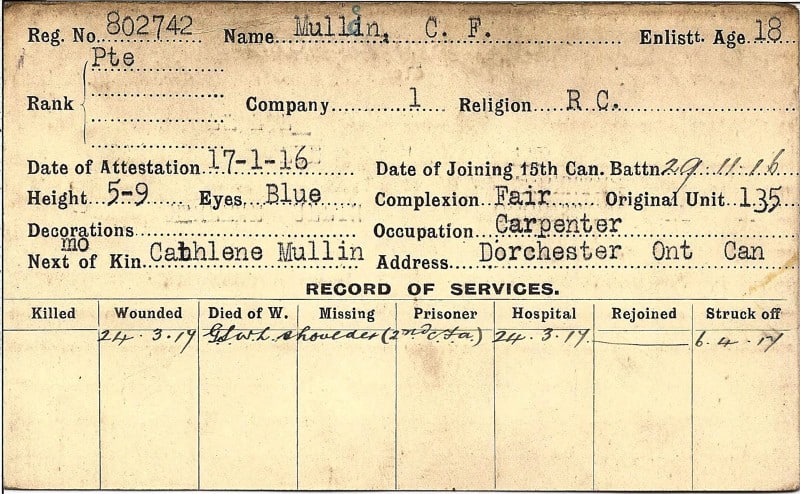 Reg. No. 802742 Name Mullin, C. F. Enlistt. Age 18
Pte
Rank Company 1 Religion R C.
Date of Attestation 17-1-16 Date of Joining 15th Can. Battn 29.11.16
Height 5-9 Eyes Blue Complexion Fair Original Unit 135
Decorations Occupation Carpenter
mo
Next of Kin Cathlene Mullin Address Dorchester Ont Can
RECORD OF SERVICES.
Killed Wounded Died of W. Missing Prisoner Hospital Rejoined Struck off
24.3.17 GSW L. shoulder (2nd C Fa.) 24.3.17 6.4.17